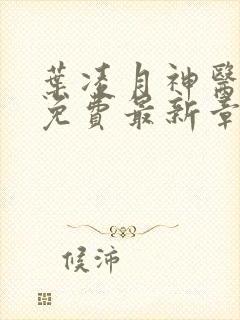 葉凌月神醫
免費最新章
候沛